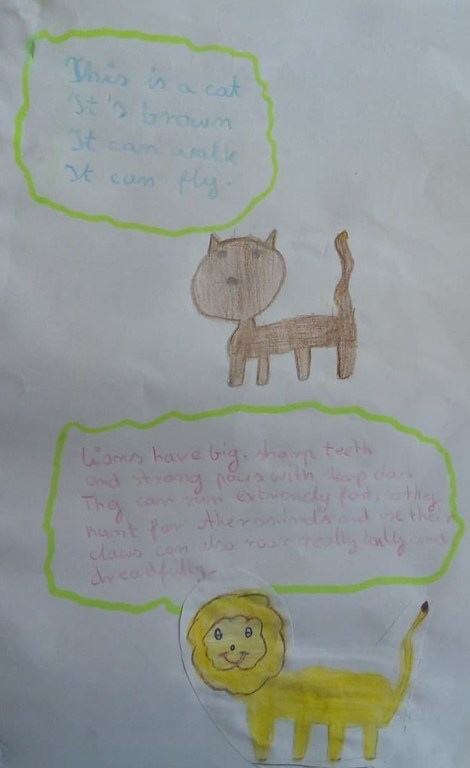 This is a cat
It's brown
It can walk
It can fly.
Lions have big, sharp teeth
and strong paws with claws
They can run extremely fast, so they
hunt for other animals and use their
claws can also roar really and
dreadfully.